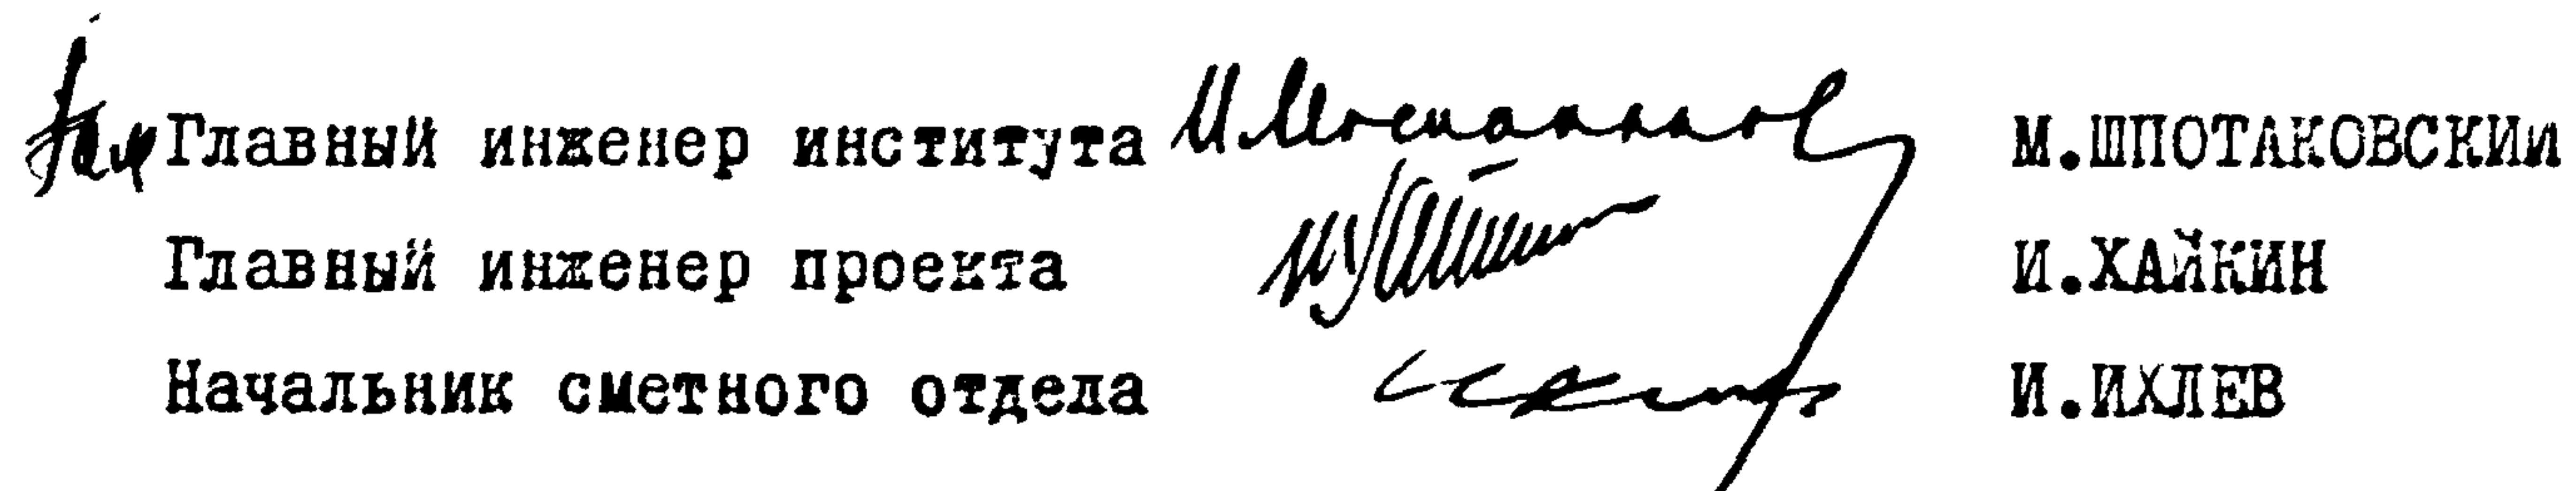 Главный инженер института М.ШПОТАКОВСКИЙ
Главный инженер проекта И.ХАЙКИН
Начальник сметного отдела И.ИХЛЕВ